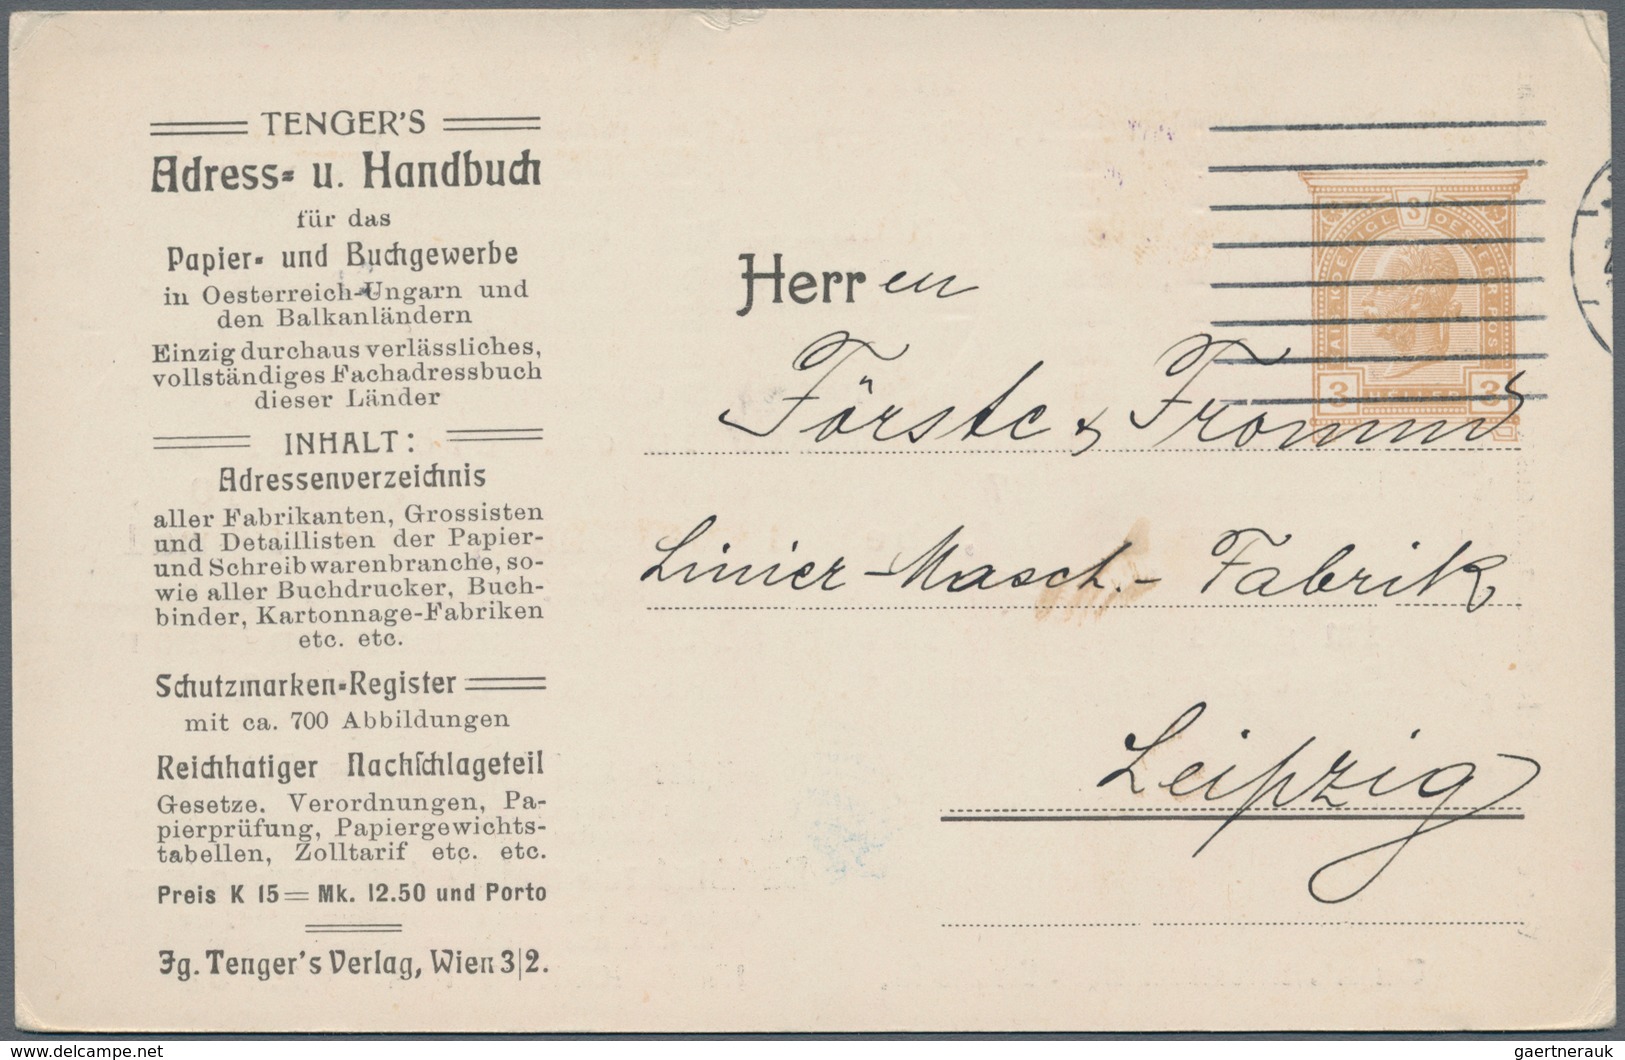 TENGER'S
Adress- u. Handbuch
für das
Papier- und Buchgewerbe
in Oesterreich-Ungarn und
den Balkanländern
Einzig durchaus verlässliches,
vollständiges Fachadressbuch
dieser Länder
INHALT:
Adressenverzeichnis
aller Fabrikanten, Grossisten
und Detaillisten der Papier-
und Schreibwarenbranche, so-
wie aller Buchdrucker, Buch-
binder, Kartonnage-Fabriken
etc. etc.
Schutzmarken-Register
mit ca. 700 Abbildungen
Reichhatiger Nachſchlageteil
Gesetze. Verordnungen, Pa-
pierprüfung, Papiergewichts-
tabellen, Zolltarif etc. etc.
Preis K 15 = Mk. 12.50 und Porto
Jg. Tenger's Verlag, Wien 3|2.
3
KAIS. KOENIGL. OESTERR. POST
3 HELLER 3
Herren
Förste & Tromm
Linier-Masch.-Fabrik
Leipzig
www.delcampe.net
gaertnerauk